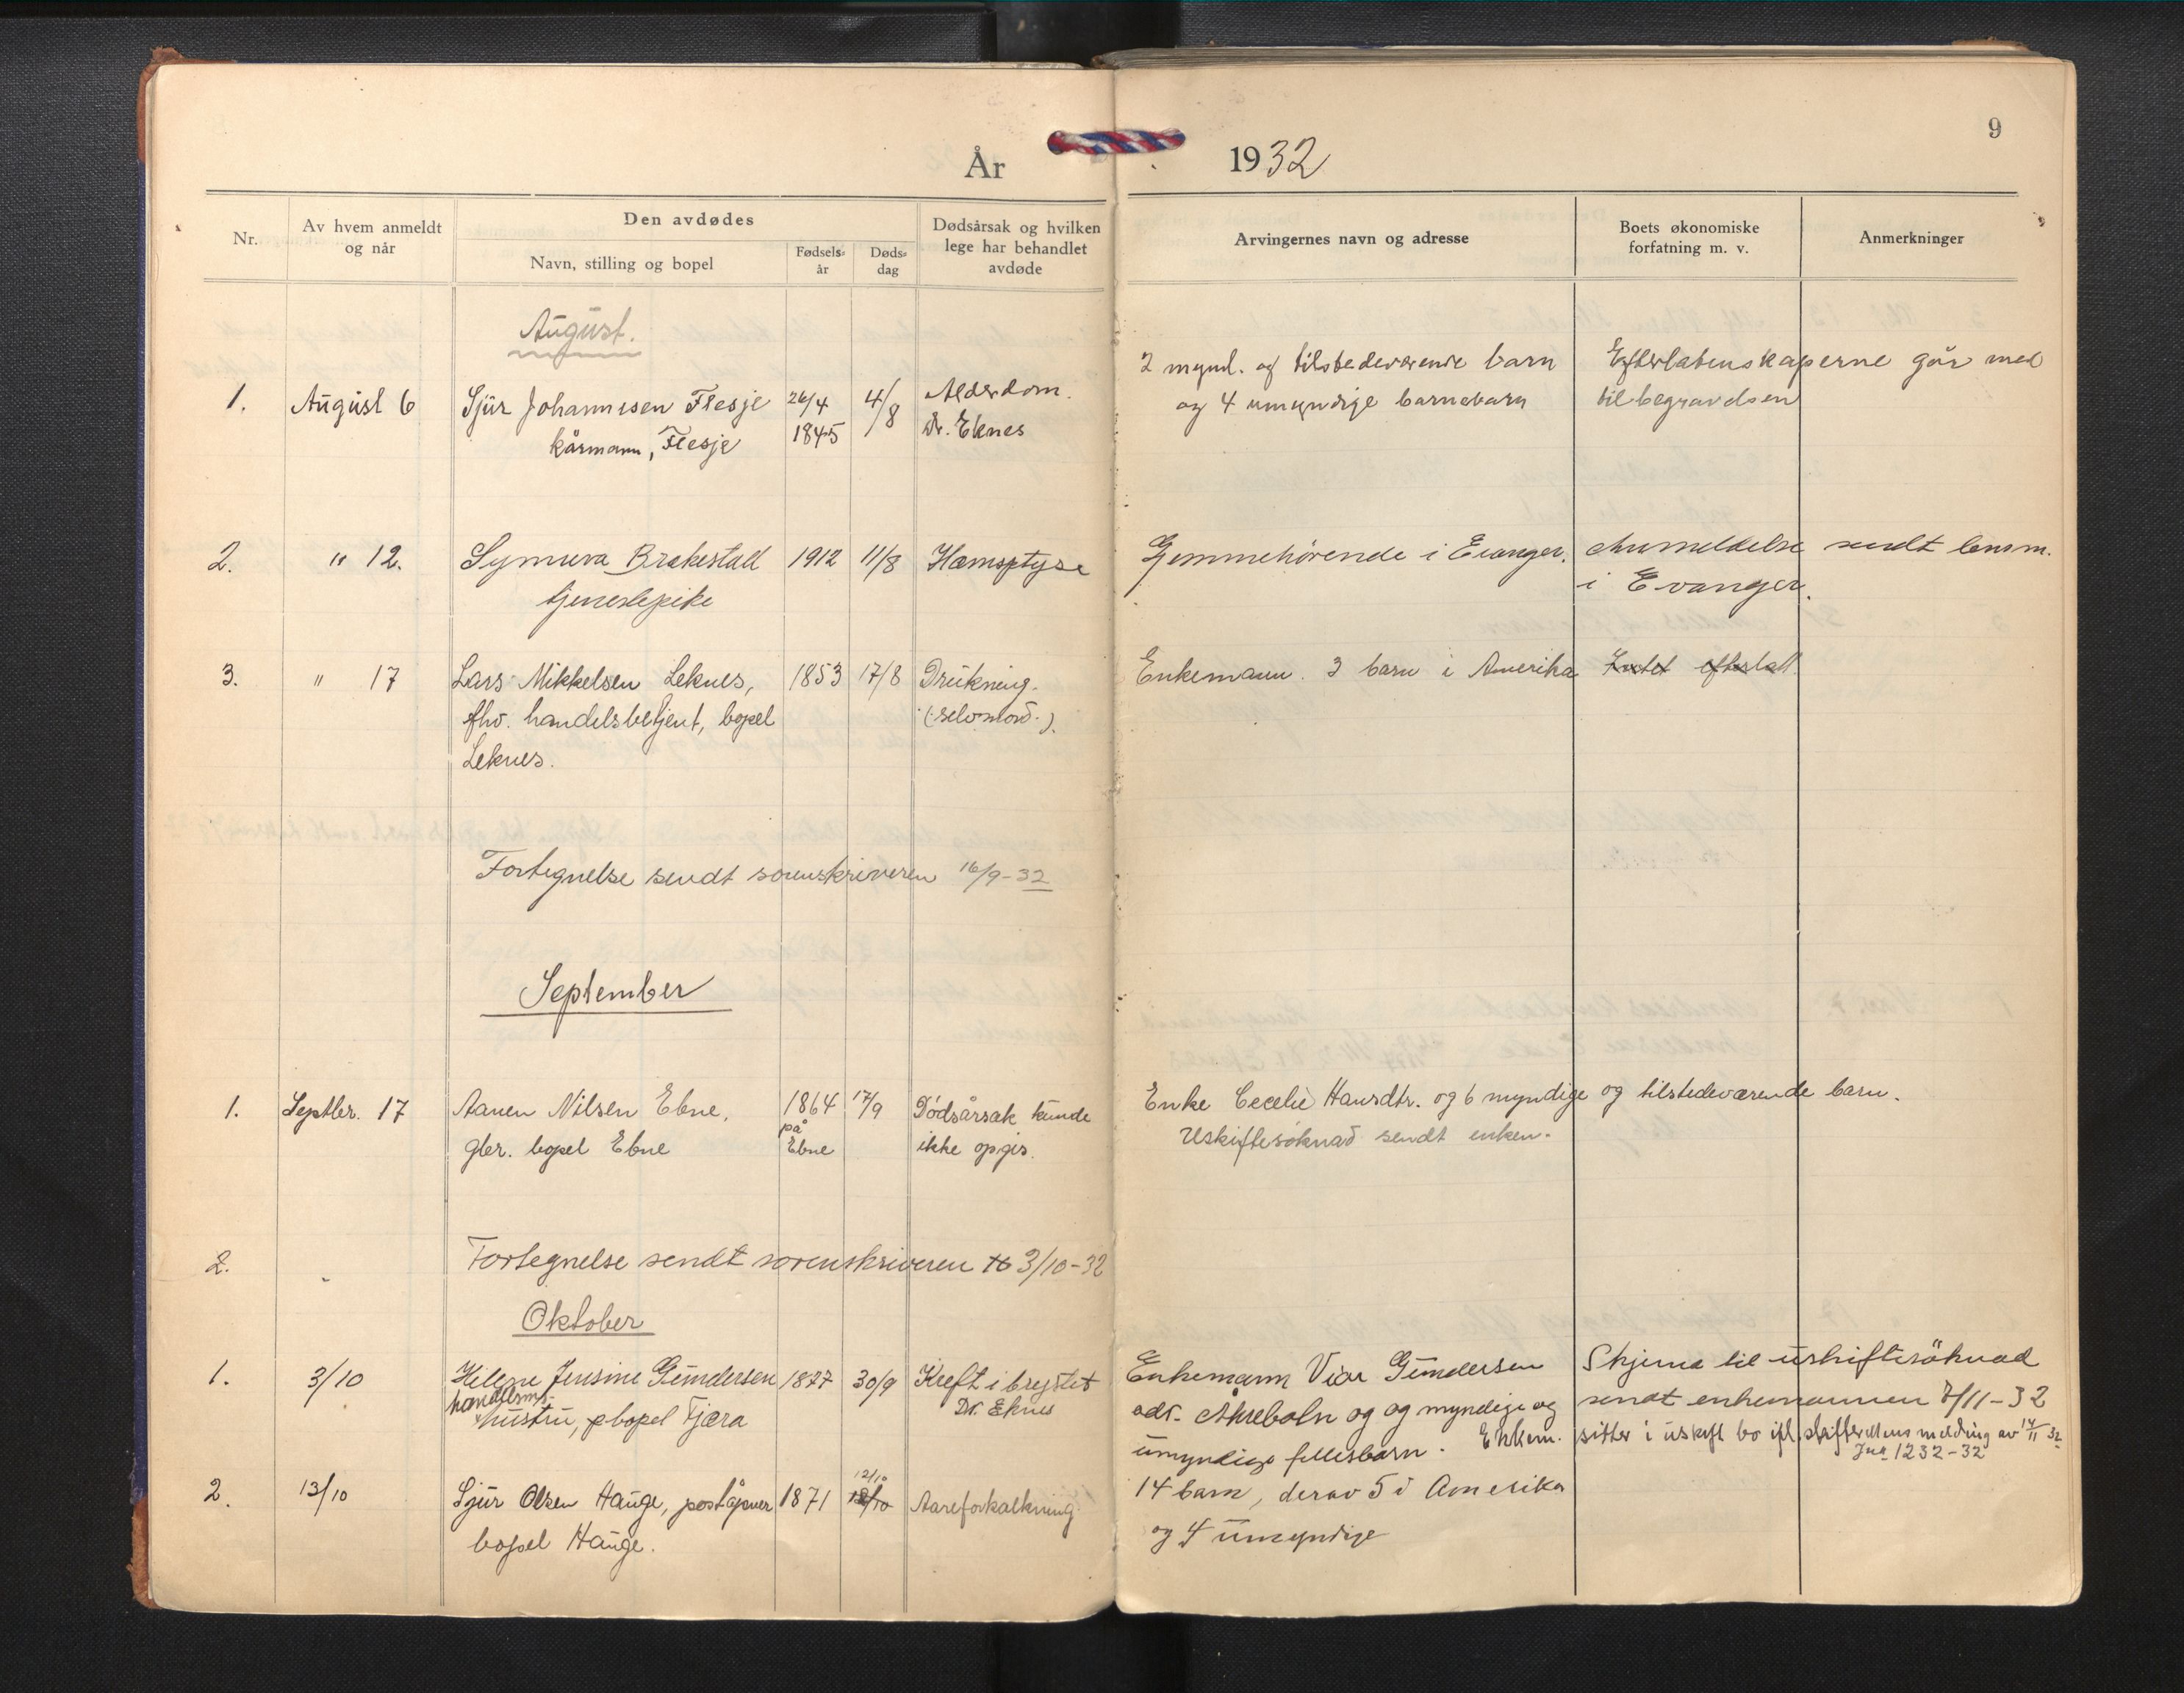 9
År 1932
Nr.
Av hvem anmeldt
og når
Den avdødes
Navn, stilling og bopel
Fødsels-
år
Døds-
dag
Dødsårsak og hvilken
lege har behandlet
avdøde
Arvingernes navn og adresse
Boets økonomiske
forfatning m. v.
Anmerkninger
August.
1. August 6 Sjur Johannessen Flesje 26/4 4/8 Alderdom.
kårmann, Flesje 1845 Dr. Eknes
2 mynd. og tilstedeværende barn Efterlatenskaperne går med
og 4 umyndige barnebarn til begravelsen
2. " 12. Synneva Brakestad 1912 11/8 Hæmoptyse
tjenestepike
Hjemmehørende i Evanger. Anmeldelse sendt lensm.
i Evanger.
3. " 17 Lars Mikkelsen Leknes, 1853 17/8 Drukning.
fhv. handelsbetjent, bopel (selvmord.).
Leknes.
Enkemann. 3 barn i Amerika Intet efterlatt.
Fortegnelse sendt sorenskriveren 16/9-32
September
1. Septbr. 17 Aamen Nilsen Ebne, 1864 17/9 Dødsårsak kunde
gbr. bopel Ebne på Ebne ikke opgis.
Enke Cecelie Hansdtr. og 6 myndige og tilstedeværende barn.
Uskiftesøknad sendt enken.
2. Fortegnelse sendt sorenskriveren 3/10-32
Oktober
1. 3/10 Helene Jensine Gundersen 1877 30/9 Kreft i brystet
handelsm. hustru, bopel Tjæra Dr. Eknes
Enkemann Gundersen Skjema til uskiftesöknad
adr. og og myndige og sendt enkemannen 7/11-32
umyndige fellesbarn. Enkem. sitter i uskift bo ifl. skifterettens melding av 14/11 32
Jnr 1232-32
2. 13/10 Sjur Olsen Hauge, poståpner 1871 12/10 Aareforkalkning
bopel Hauge.
14 barn, derav 5 i Amerika
og 4 umyndige